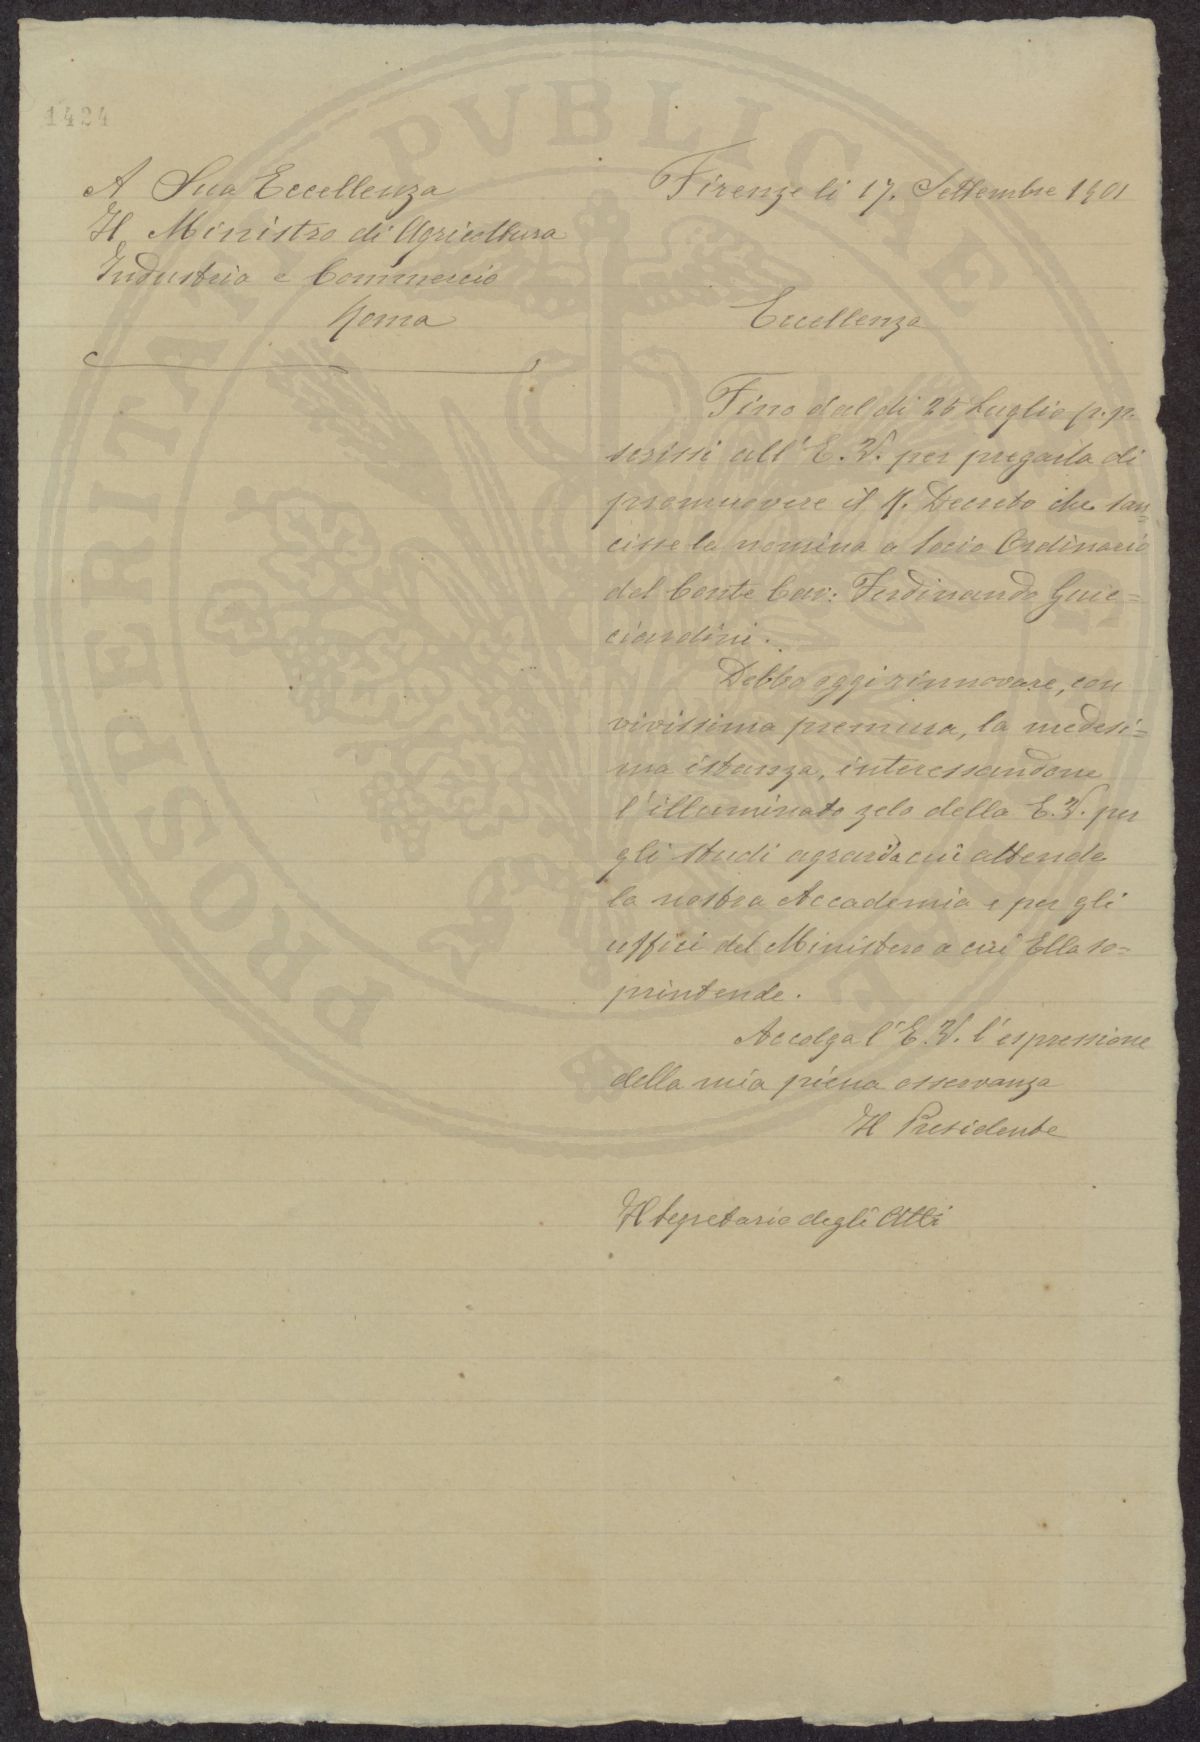 1424
A Sua Eccellenza
Il Ministro di Agricoltura
Industria e Commercio
Roma
Firenze li 17. Settembre 1901
Eccellenza
Fino dal dì 25 Luglio p.p.
scrissi all'E.V. per pregarla di
promuovere il R. Decreto che san=
cisse la nomina a Socio Ordinario
del Conte Cav: Ferdinando Guic=
ciardini.
Debbo oggi rinnovare, con
vivissima premura, la medesi=
ma istanza, interessandone
l'illuminato zelo della E.V. per
gli studi agrari a cui attende
la nostra Accademia e per gli
uffici del Ministero a cui Ella so=
printende.
Accolga l'E.V. l'espressione
della mia piena osservanza
Il Presidente
Il Segretario degli Atti
PROSPERITATI PVBLICAE AVGENDAE